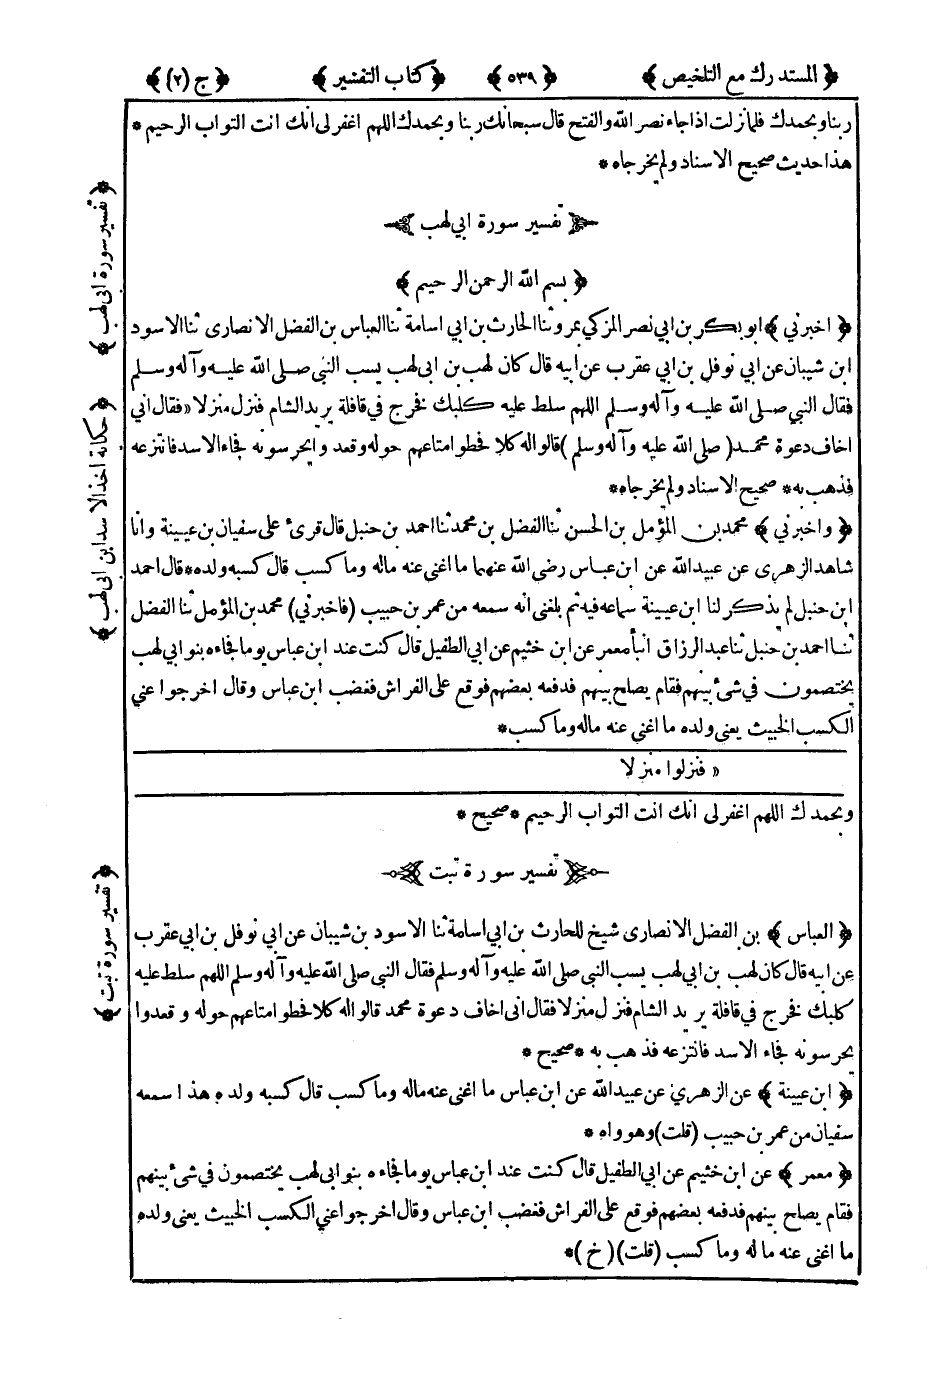 ﴿ المستدرك مع التلخيص ﴾ ﴿ ٥٣٩ ﴾ ﴿ كتاب التفسير ﴾ ﴿ ج (٢) ﴾
ربنا وبحمدك فلما نزلت اذا جاء نصر الله والفتح قال سبحانك ربنا وبحمدك اللهم اغفر لى انك انت التواب الرحيم *
هذا حديث صحيح الاسناد ولم يخرجاه *
تفسير سورة ابي لهب
﴿ بسم الله الرحمن الرحيم ﴾
﴿ اخبرني ﴾ ابو بكر بن ابي نصر المزكي بمرو ثنا الحارث بن ابي اسامة ثنا العباس بن الفضل الانصارى ثنا الاسود
ابن شيبان عن ابي نوفل بن ابي عقرب عن ابيه قال كان لهب بن ابى لهب يسب النبى صلى الله عليه وآله وسلم
فقال النبي صلى الله عليه وآله وسلم اللهم سلط عليه كلبك فخرج في قافلة يريد الشام فنزل منزلا « فقال انى
اخاف دعوة محمد (صلى الله عليه وآله وسلم) قالوا له كلا فحطوا متاعهم حوله وقعدوا يحرسونه فجاء الاسد فانتزعه
فذهب به * صحيح الاسناد ولم يخرجاه *
﴿ واخبرني ﴾ محمد بن المؤمل بن الحسن ثنا الفضل بن محمد ثنا احمد بن حنبل قال قرئ على سفيان بن عيينة وانا
شاهد الزهرى عن عبيد الله عن ابن عباس رضى الله عنهما ما اغنى عنه ماله وما كسب قال كسبه ولده * قال احمد
ابن حنبل لم يذكر لنا ابن عيينة سماعه فيه ثم بلغنى انه سمعه من عمر بن حبيب (فاخبرني) محمد بن المؤمل ثنا الفضل
ثنا احمد بن حنبل ثنا عبد الرزاق انبأ معمر عن ابن خثيم عن ابي الطفيل قال كنت عند ابن عباس يوما فجاءه بنو ابي لهب
يختصمون في شئ بينهم فقام يصلح بينهم فدفعه بعضهم فوقع على الفراش فغضب ابن عباس وقال اخرجوا عني
الكسب الخبيث يعنى ولده ما اغنى عنه ماله وما كسب *
« فنزلوا منزلا
وبحمدك اللهم اغفر لى انك انت التواب الرحيم * صحيح *
تفسير سورة تبت
﴿ العباس ﴾ بن الفضل الانصارى شيخ للحارث بن ابي اسامة ثنا الاسود بن شيبان عن ابي نوفل بن ابي عقرب
عن ابيه قال كان لهب بن ابي لهب يسب النبى صلى الله عليه وآله وسلم فقال النبي صلى الله عليه وآله وسلم اللهم سلط عليه
كلبك فخرج في قافلة يريد الشام فنزل منزلا فقال انى اخاف دعوة محمد قالوا له كلا فحطوا متاعهم حوله وقعدوا
يحرسونه فجاء الاسد فانتزعه فذهب به * صحيح *
﴿ ابن عيينة ﴾ عن الزهري عن عبيد الله عن ابن عباس ما اغنى عنه ماله وما كسب قال كسبه ولده هذا سمعه
سفيان من عمر بن حبيب (قلت) وهو واه *
﴿ معمر ﴾ عن ابن خثيم عن ابي الطفيل قال كنت عند ابن عباس يوما فجاءه بنو ابى لهب يختصمون في شئ بينهم
فقام يصلح بينهم فدفعه بعضهم فوقع على الفراش فغضب ابن عباس وقال اخرجوا عني الكسب الخبيث يعنى ولده
ما اغنى عنه ماله وما كسب (قلت) (خ) *
﴿ تفسير سورة ابى لهب ﴾
﴿ حكاية اخذ الاسد ابن ابى لهب ﴾
﴿ تفسير سورة تبت ﴾